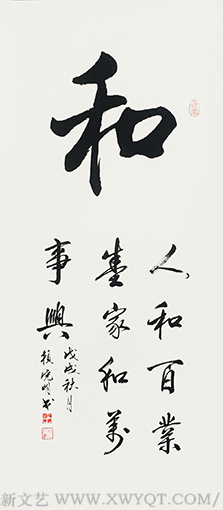 和
人和百業
盛家和萬
事興
戊戌秋月
新文艺 WWW.XWYQT.COM/